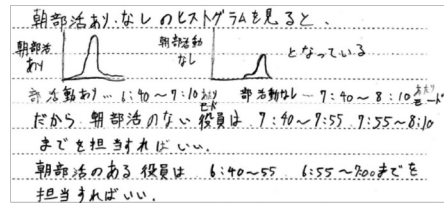 朝部活あり.なしのヒストグラムを見ると、
朝部活あり
朝部活動なし
となっている
部活動あり… 6:40〜7:10あたりモード 部活動なし… 7:40〜8:10あたりモード
だから 朝部活のない役員は 7:40〜7:55 7:55〜8:10
までを担当すればいい.
朝部活のある役員は 6:40〜55 6:55〜7:00までを
担当すればいい.